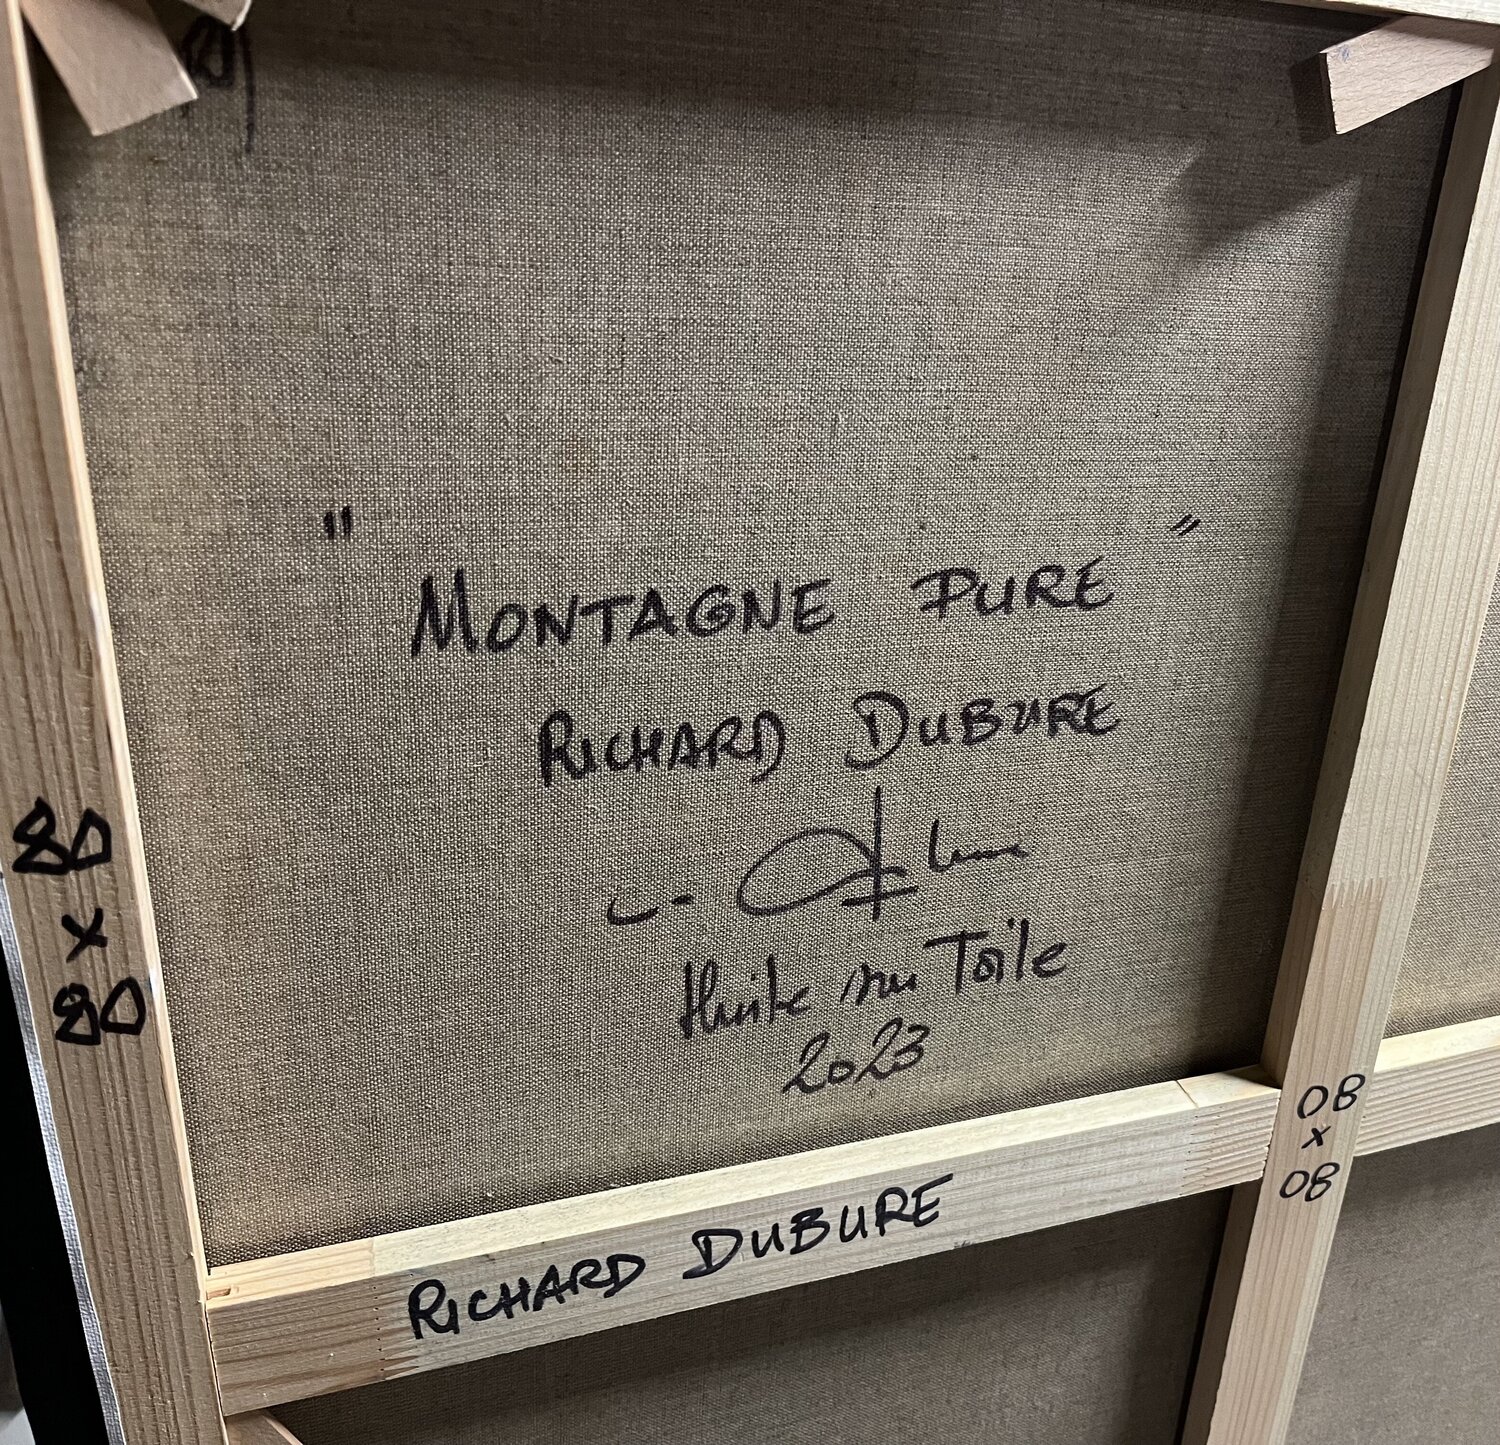 " MONTAGNE PURE "
RICHARD DUBURE
Huile sur Toile
2023
80
x
80
RICHARD DUBURE
80
x
80